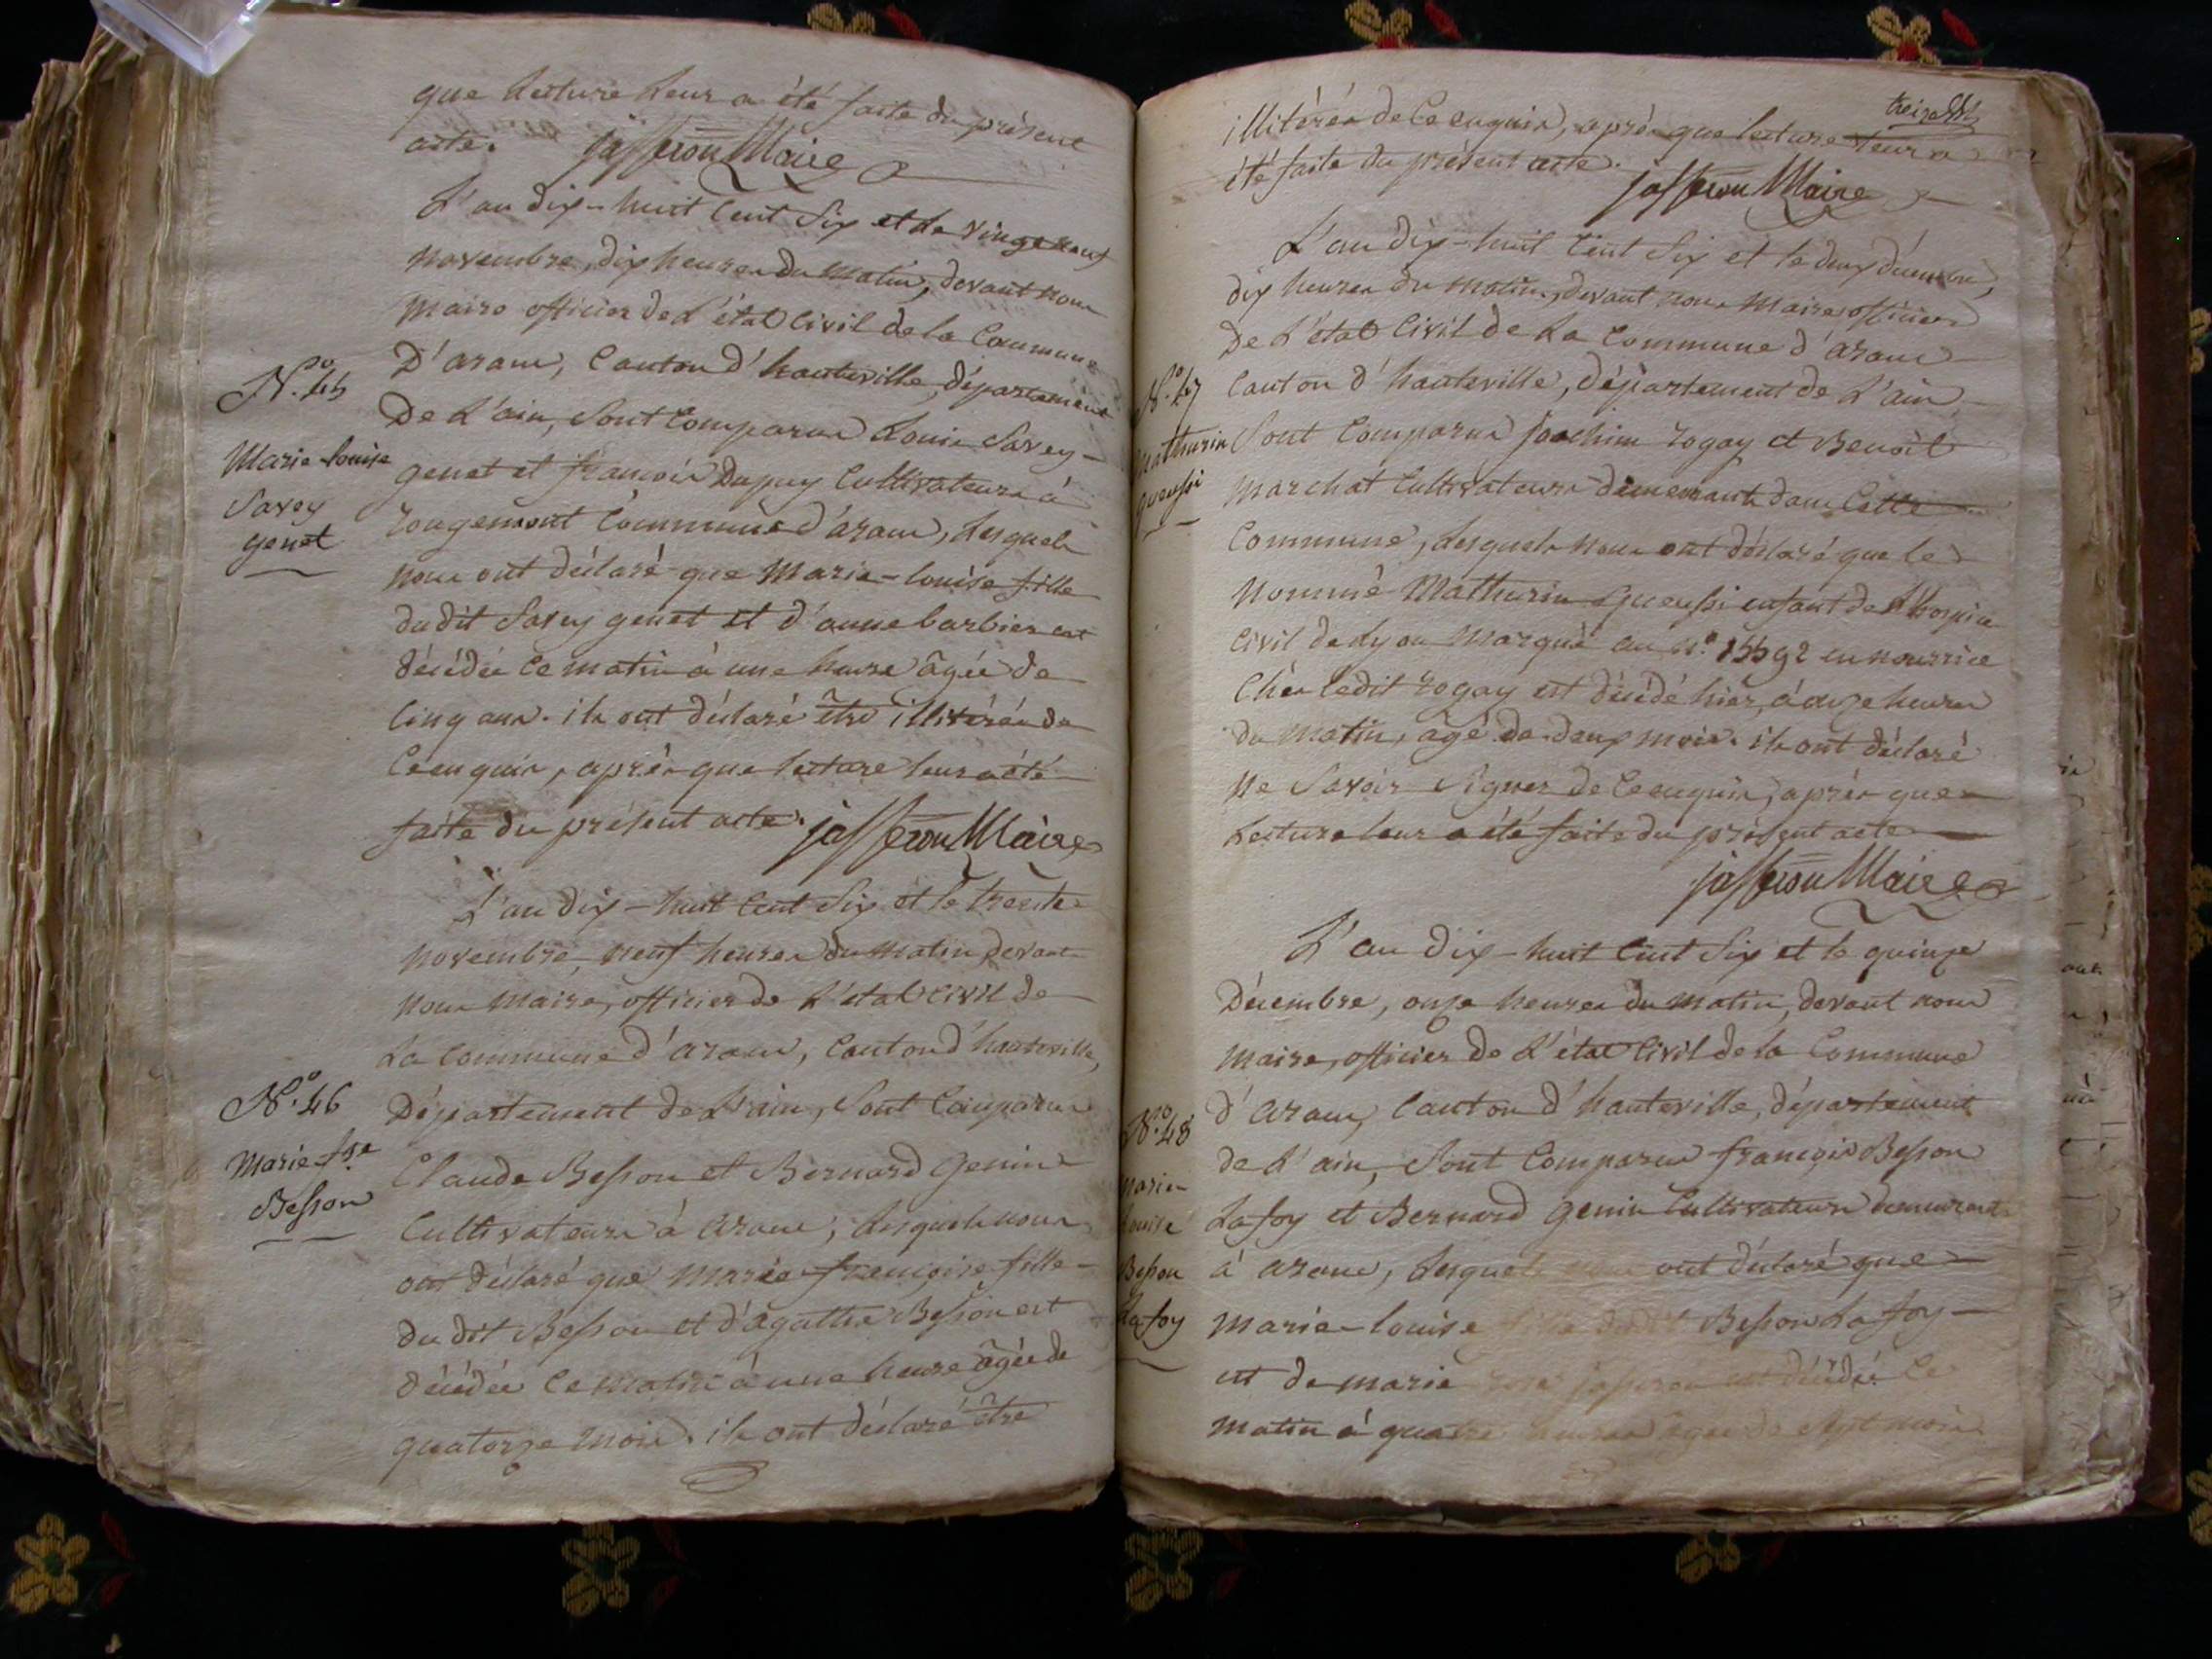 que lecture leur a été faite du présent
acte. jasseron Maire
L'an dix-huit cent six et le vingt neuf
novembre, dix heures du matin, devant nous
maire officier de l'état civil de la Commune
D'aranc, Canton d'hauteville, département
N.º 45
De L'ain, sont comparus Louis Savey-
Marie-louise
Savey
genet
genet et françois Dupuy Cultivateurs à
rougemont Commune d'aranc, lesquels
nous ont déclaré que Marie-louise fille
du dit Savey genet et d'anne barbier est
décédée ce matin à une heure âgée de
cinq ans. ils ont déclaré être illitérés de
ce enquis, après que lecture leur a été
faite du présent acte. jasseron Maire
L'an dix-huit cent six et le trente
novembre, neuf heures du matin devant
nous maire, officier de L'état civil de
La Commune d'aranc, Canton d'hauteville,
N.º 46
Département de L'ain, sont Comparus
Marie fse
Besson
Claude Besson et Bernard Genin
Cultivateurs à aranc, lesquels nous
ont déclaré que marie-françoise fille
du dit Besson et d'agathe Besson est
décédée ce matin à une heure âgée de
quatorze mois. ils ont déclaré être
illitérés de ce enquis, après que lecture leur a
été faite du présent acte. jasseron Maire
L'an dix-huit cent six et le deux décembre,
dix heures du matin, devant nous maire officier
De L'état civil de La Commune d'aranc
N.º 47
Canton d'hauteville, département de L'ain
Mathurin
Sont Comparus joachim rogay et Benoît
marchat Cultivateurs demeurants dans Cette
Commune, lesquels nous ont déclaré que le
nommé Mathurin enfant de L'hospice
civil de Lyon marqué au n.º 15592 en nourrice
chès ledit rogay est décédé hier, à onze heures
du matin, âgé de deux mois. ils ont déclaré
ne savoir signer de ce enquis, après que
lecture leur a été faite du présent acte
jasseron Maire
L'an dix-huit cent six et le quinze
Décembre, onze heures du matin, devant nous
maire, officier de L'état civil de la Commune
N.º 48
d'aranc, Canton d'hauteville, département
de L'ain, sont Comparus françois Besson
marie
louise
Besson
La foy
La foy et Bernard genin Cultivateurs demeurant
à aranc, lesquels nous ont déclaré que
marie-louise fille dudit Besson La foy
et de marie jasseron est décédée ce
matin à quatre heures âgée de sept mois